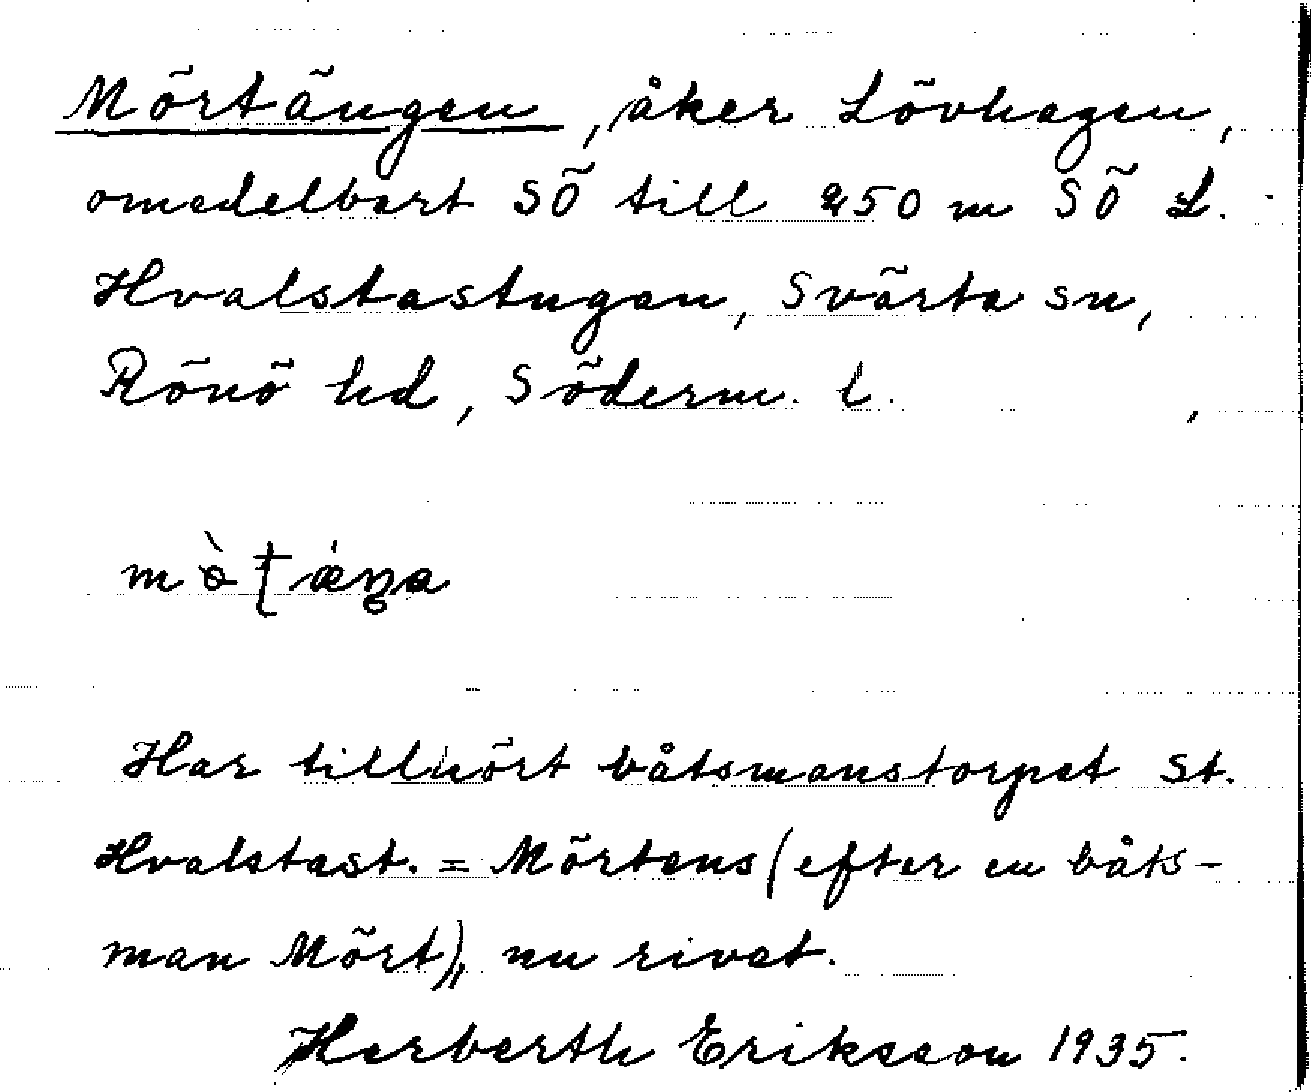 Mörtängen, åker Lövhagen,
omedelbart SÖ till 250 m SÖ L.
Hvalstastugan, Svärta sn,
Rönö hd, Söderm. l.
Har tillhört båtsmanstorpet St.
Hvalstast. = Mörtens (efter en båts-
man Mört), nu rivet.
Herberth Eriksson 1935.